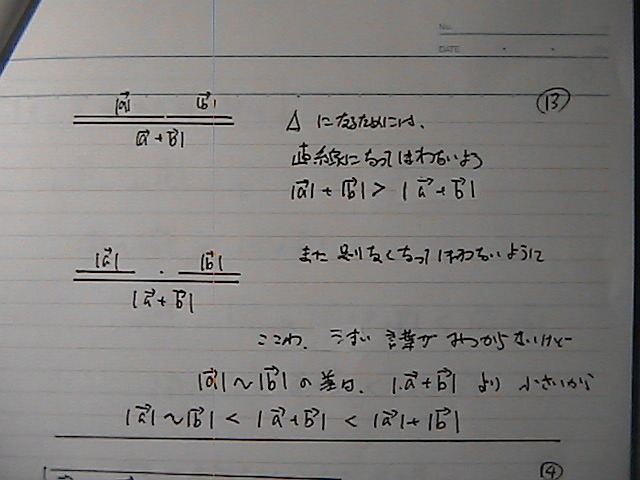 No.
DATE
⑬
|a→| |b→|
|a→ + b→|
△ になるためには、
直線になってはわないよう
|a→| + |b→| > | a→ + b→ |
|a→| . |b→|
|a→ + b→|
また 足りなくなってはわないように
ここわ、うまい 言葉が みつからないけどー
|a→| ~ |b→| の差は、 | a→ + b→ | より 小さいから
|a→| ~ |b→| < | a→ + b→ | < |a→| + |b→|
④